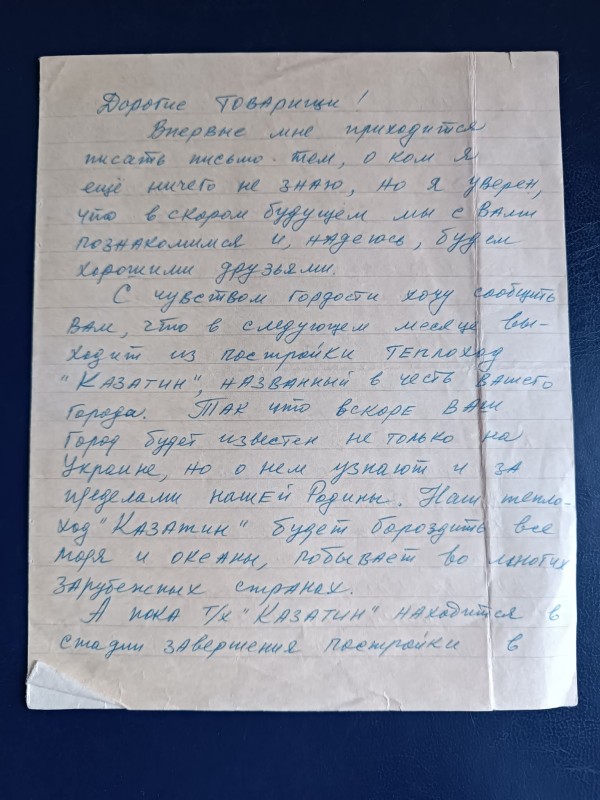 Дорогие товарищи!
Впервые мне приходится
писать письмо тем, о ком я
ещё ничего не знаю, но я уверен,
что в скором будущем мы с Вами
познакомимся и, надеюсь, будем
хорошими друзьями.
С чувством гордости хочу сообщить
Вам, что в следующем месяце вы-
ходит из постройки теплоход
"Казатин", названный в честь Вашего
города. Так что вскоре Ваш
город будет известен не только на
Украине, но о нем узнают и за
пределами нашей Родины. Наш тепло-
ход "Казатин" будет бороздить все
моря и океаны, побывает во многих
зарубежных странах.
А пока т/х "Казатин" находится в
стадии завершения постройки в